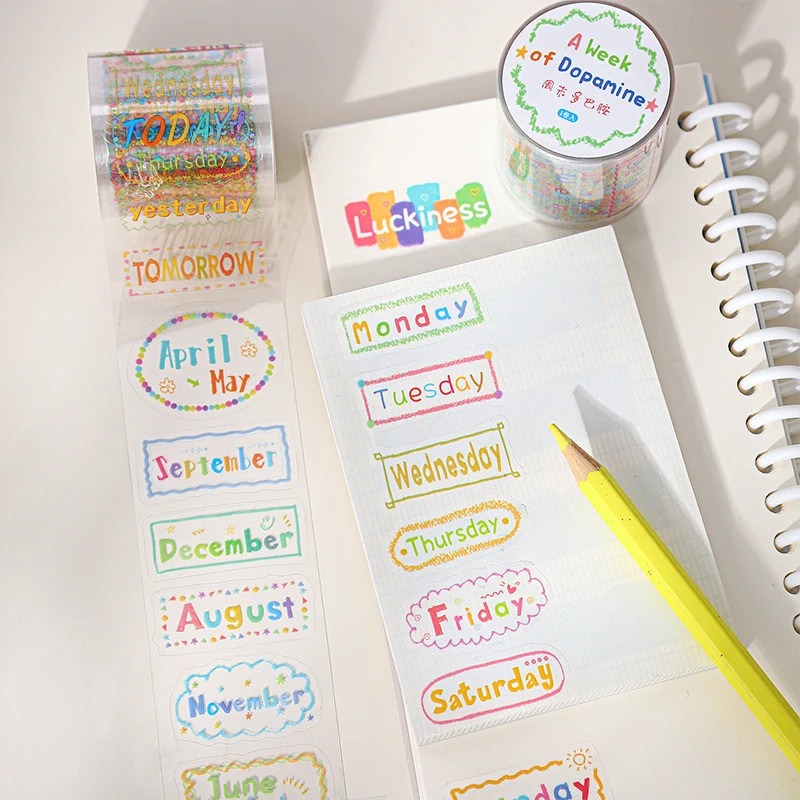 Wednesday
TODAY!
Thursday
yesterday
TOMORROW
April
May
September
December
August
November
June
A Week
of Dopamine
周末多巴胺
1卷入
Luckiness
Monday
Tuesday
Wednesday
Thursday
Friday
Saturday